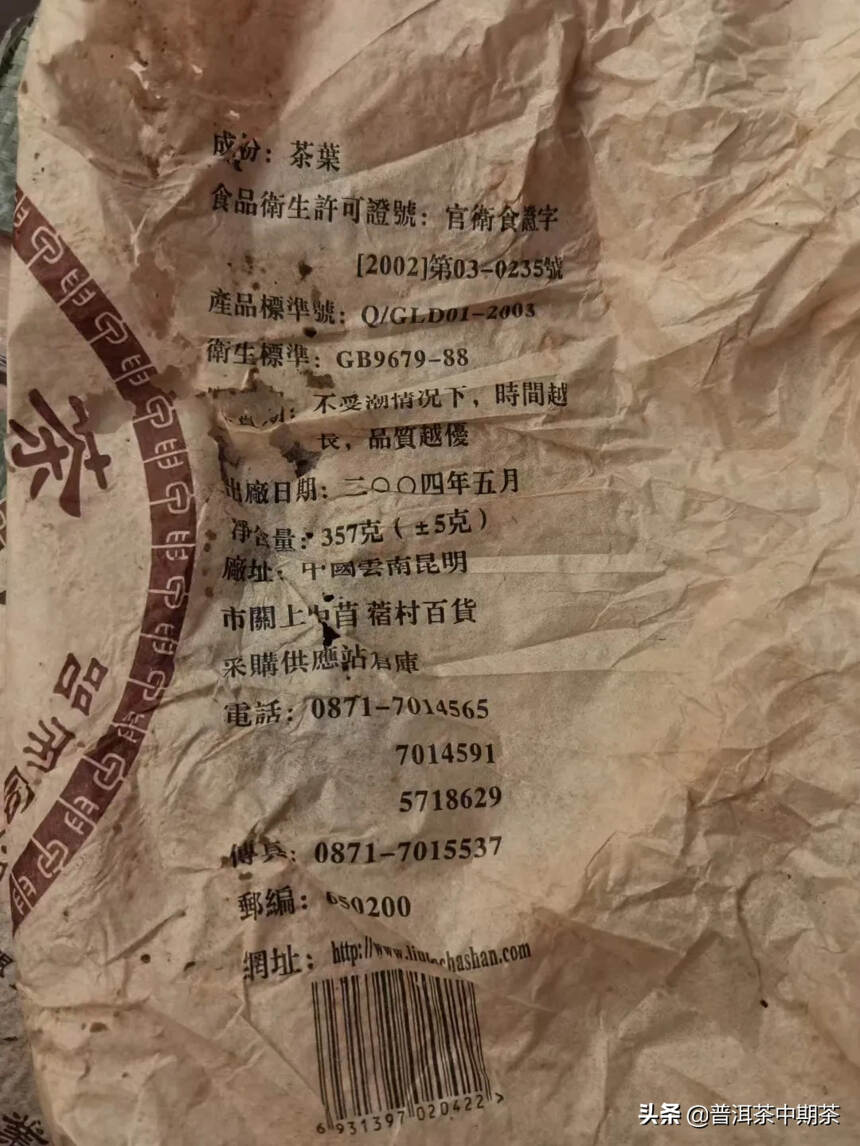 成份：茶葉
食品衛生許可證號：官衛食證字
[2002]第03-0235號
產品標準號：Q/GLD01-2003
衛生標準：GB9679-88
不受潮情況下，時間越
長，品質越優
出廠日期：二〇〇四年五月
净含量：357克（±5克）
廠址：中國雲南昆明
市關上中苜蓿村百貨
采購供應站倉庫
電話：0871-7014565
7014591
5718629
傳真：0871-7015537
郵編：650200
網址：
6 931397 020422 >
茶
品
头条 @普洱茶中期茶